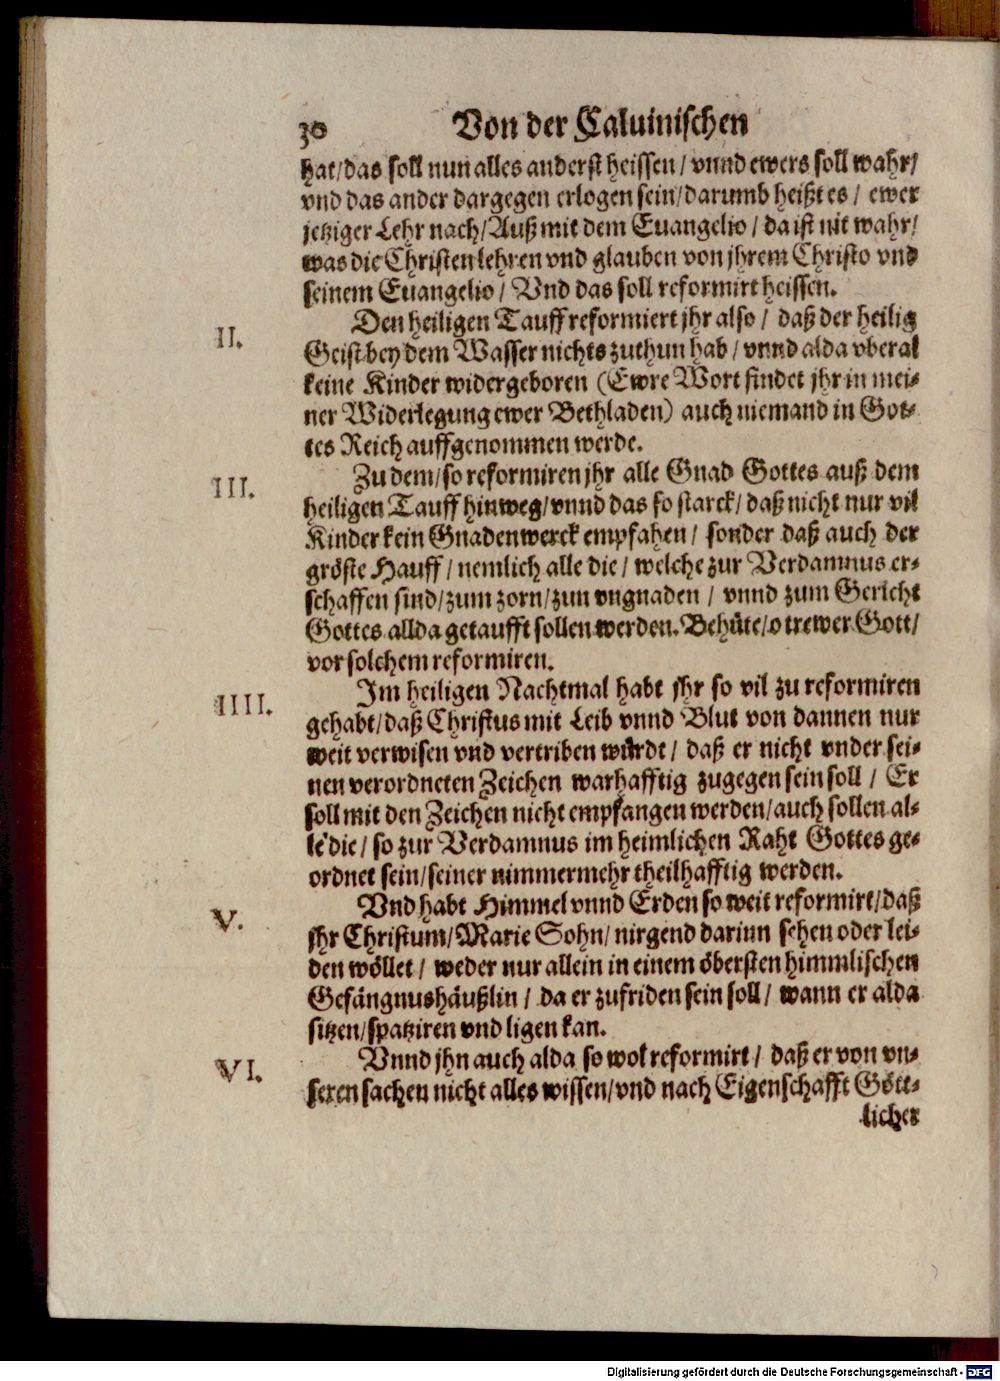 30 Von der Caluinischen
hat/das soll nun alles anderst heissen/vnnd ewers soll wahr/
vnd das ander dargegen erlogen sein/darumb heißt es/ ewer
jetziger Lehr nach/Auß mit dem Euangelio/da ist nit wahr/
was die Christen lehren vnd glauben von jhrem Christo vnd
seinem Euangelio/ Vnd das soll reformirt heissen.
II. Den heiligen Tauff reformiert jhr also/ daß der heilig
Geist bey dem Wasser nichts zuthun hab/ vnnd alda vberal
keine Kinder widergeboren (Ewre Wort findet jhr in mei-
ner Widerlegung ewer Bethladen) auch niemand in Got-
tes Reich auffgenommen werde.
III. Zu dem/so reformiren jhr alle Gnad Gottes auß dem
heiligen Tauff hinweg/vnnd das so starck/daß nicht nur vil
Kinder kein Gnadenwerck empfahen/ sonder daß auch der
gröste Hauff/nemlich alle die/ welche zur Verdamnus er-
schaffen sind/zum zorn/zun vngnaden/ vnnd zum Gericht
Gottes allda getaufft sollen werden. Behüte/o trewer Gott/
vor solchem reformiren.
IIII. Im heiligen Nachtmal habt jhr so vil zu reformiren
gehabt/daß Christus mit Leib vnnd Blut von dannen nur
weit verwisen vnd vertriben würdt/ daß er nicht vnder sei-
nen verordneten Zeichen warhafftig zugegen sein soll/ Er
soll mit den Zeichen nicht empfangen werden/auch sollen al-
le die/ so zur Verdamnus im heimlichen Raht Gottes ge-
ordnet sein/seiner nimmermehr theilhafftig werden.
V. Vnd habt Himmel vnnd Erden so weit reformirt/daß
jhr Christum/Marie Sohn/nirgend darinn sehen oder lei-
den wöllet/ weder nur allein in einem öbersten himmlischen
Gefängnushäußlin/ da er zufriden sein soll/ wann er alda
sitzen/spatziren vnd ligen kan.
VI. Vnnd jhn auch alda so wol reformirt/ daß er von vn-
seren sachen nicht alles wissen/vnd nach Eigenschafft Gött-
licher
Digitalisierung gefördert durch die Deutsche Forschungsgemeinschaft - DFG